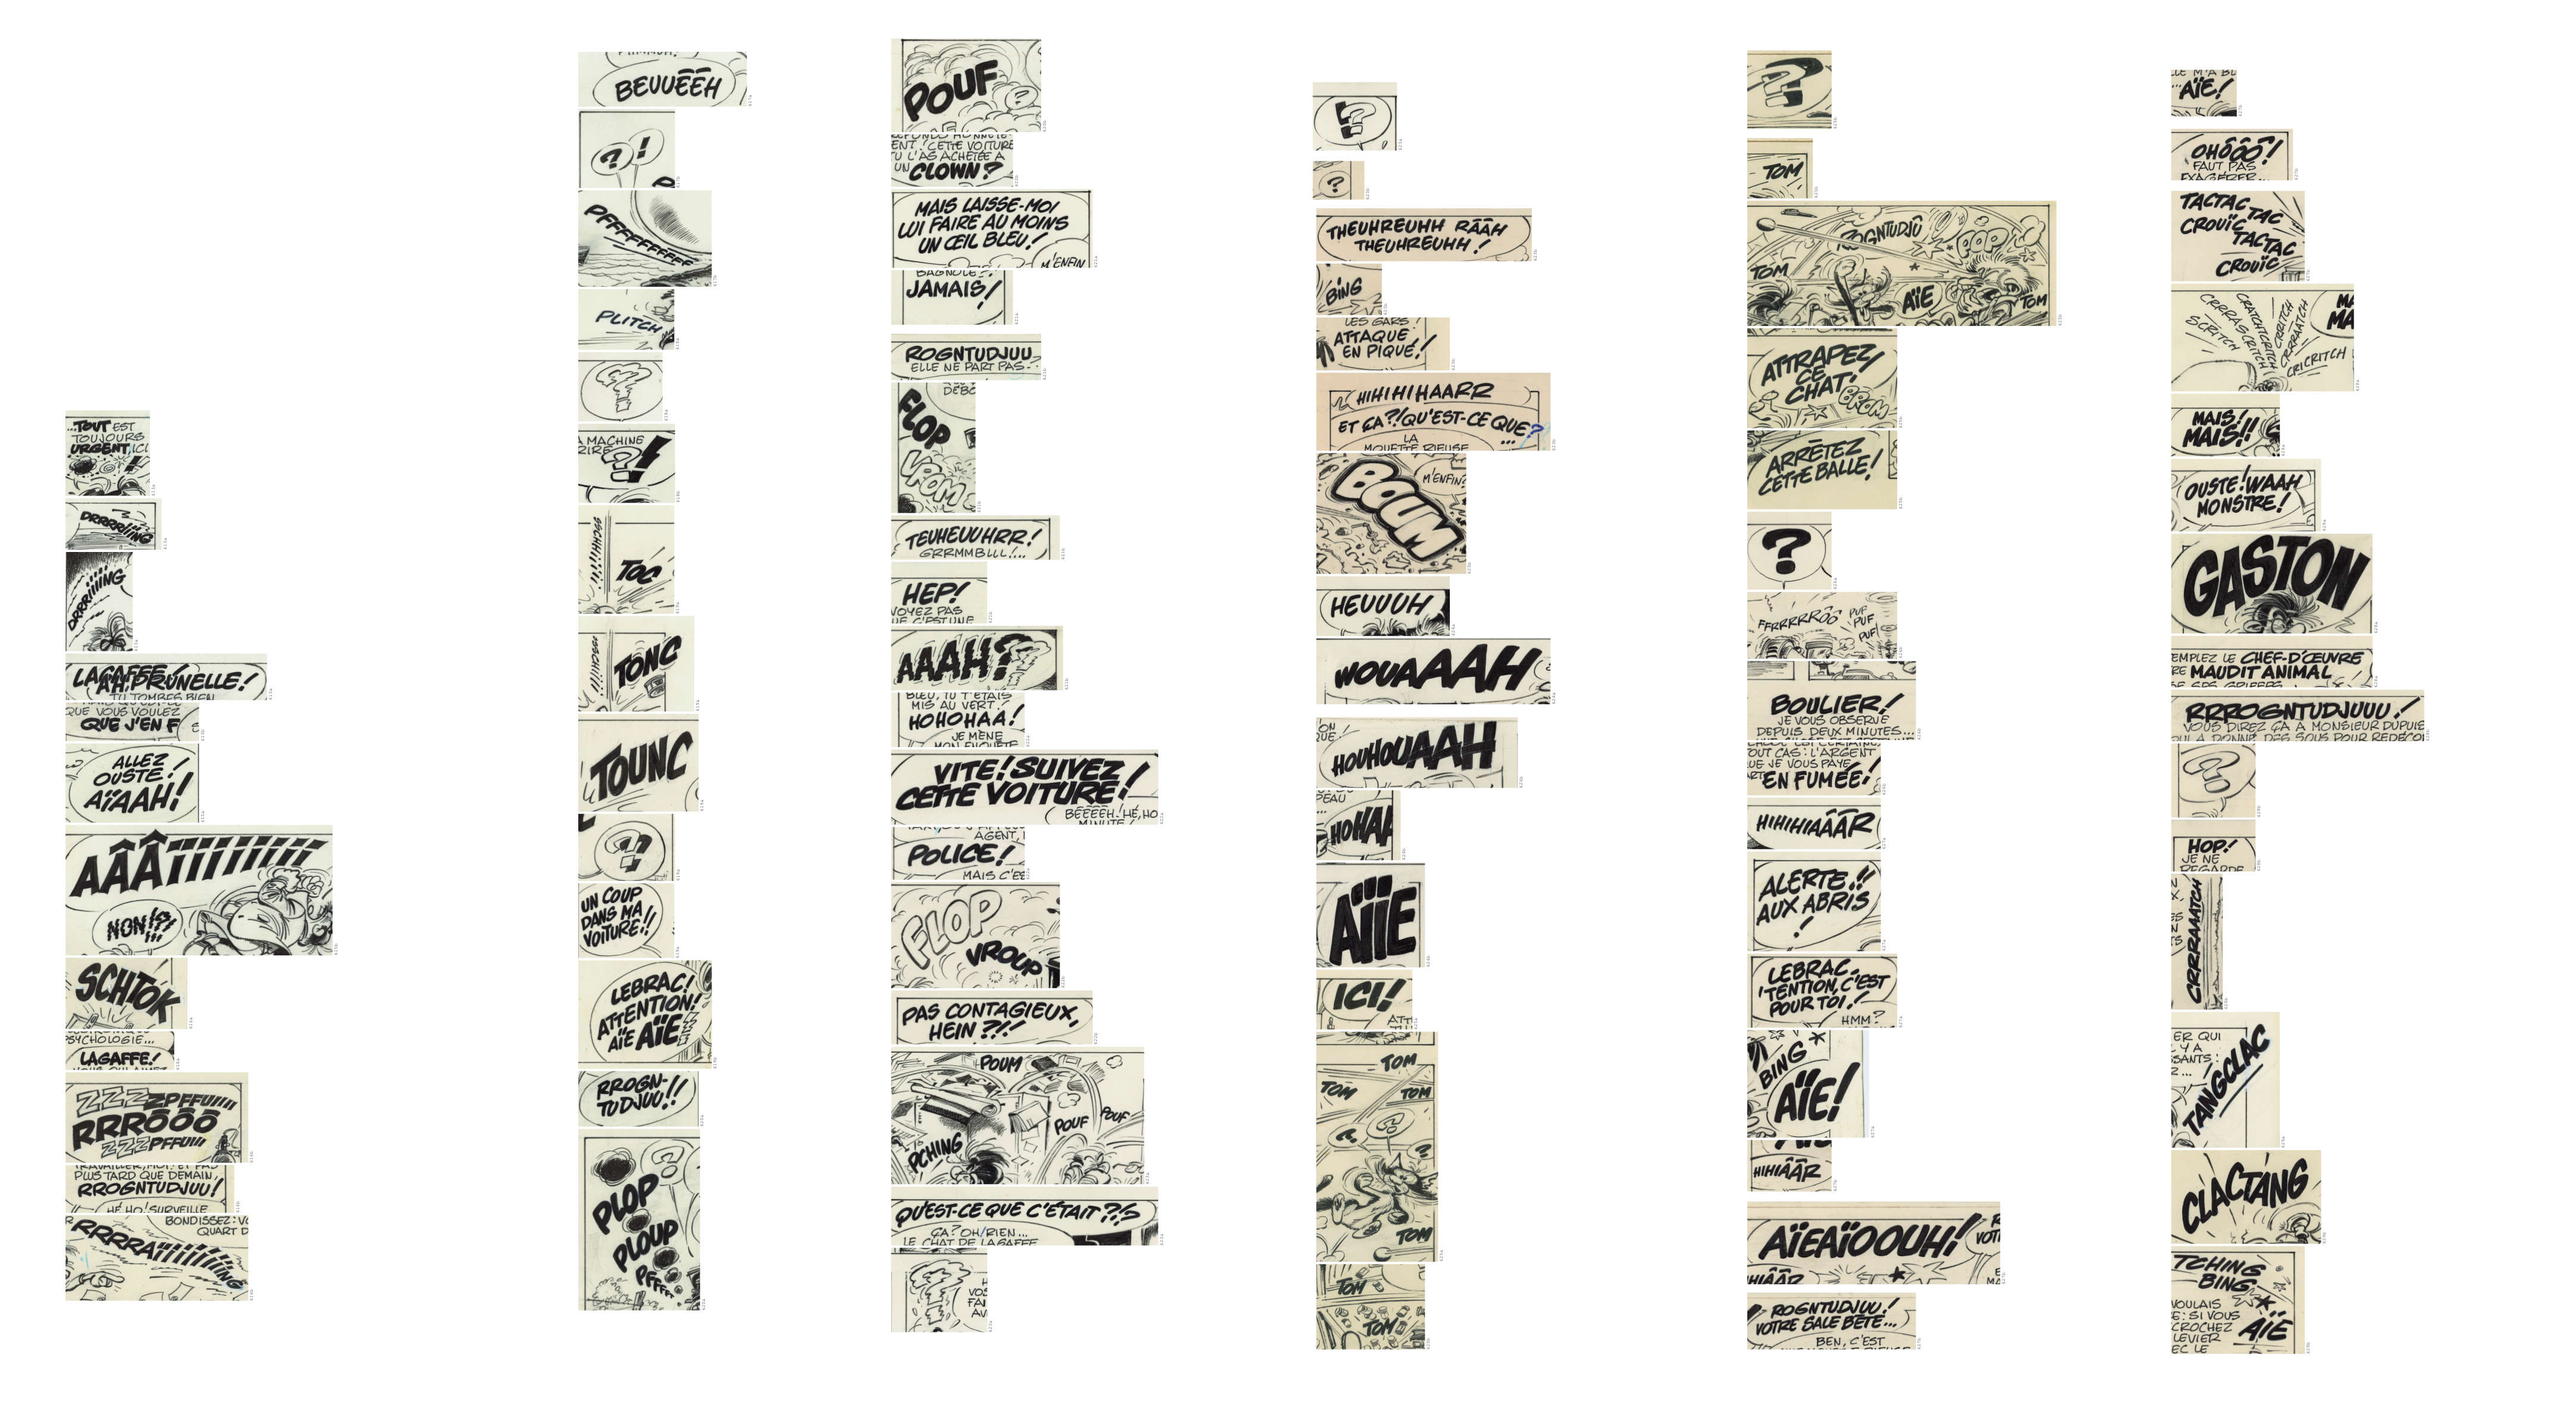 ...TOUT EST
TOUJOURS
URGENT, ICI
DRRRRIIING
DRRRIIIING
LAGAFFE!
AH, PRUNELLE!
TU TOMBES BIEN
QUE VOUS VOULEZ
QUE J'EN F
ALLEZ
OUSTE!
AÏAAH!
AÂÂÏIIIIIIIII
NON!!?!
SCHTOK
PSYCHOLOGIE...
LAGAFFE!
ZZZZPFFUIIII
RRRÔÔÔ
ZZZPFFUIII
TRAVAILLER, MOI! ET PAS
PLUS TARD QUE DEMAIN,
RROGNTUDJUU!
HÉ HO! SURVEILLE
BONDISSEZ: V
QUART D
RRRRAÏIIIIIIING
BEUUÊÊH
? !
PFFFFFFFFF
PLITCH
?
A MACHINE
RIRE
?!
SSCHHIIIIII
TOC
SSCHIII
TONC
TOUNC
?
UN COUP
DANS MA
VOITURE!!
LEBRAC!
ATTENTION!
AÏE AÏE!
RROGN-
TUDJUU!!
?
PLOP
PLOUP
PFFFF
POUF
?
ENT! CETTE VOITURE
TU L'AS ACHETÉE À
UN CLOWN?
MAIS LAISSE-MOI
LUI FAIRE AU MOINS
UN ŒIL BLEU!
M'ENFIN
BAGNOLE?!
JAMAIS!
ROGNTUDJUU
ELLE NE PART PAS?
DÉBO
FLOP
VROM
TEUHEUUHRR!
GRRMMBLLL!...
HEP!
VOYEZ PAS
UE C'EST UNE
AAAH??
BLEU, TU T'ÉTAIS
MIS AU VERT!
HOHOHAA!
JE MÈNE
MON ENQUÊTE
VITE! SUIVEZ
CETTE VOITURE!
BÊÉÉÉH! HÉ, HO
MINUTE!
AGENT, I
POLICE!
MAIS C'ES
FLOP
VROUP
PAS CONTAGIEUX,
HEIN?!!
POUM
POUF
POUF
PCHING
QU'EST-CE QUE C'ÉTAIT?!?
ÇA? OH, RIEN...
LE CHAT DE LAGAFFE
VOS
FAI
AV
!?
?
THEUHREUHH RÂÂH
THEUHREUHH!
BING
LES GARS!
ATTAQUE
EN PIQUÉ!
HIHIHIHAARR
ET ÇA?! QU'EST-CE QUE?
...
LA
MOUETTE RIEUSE
BOUM
M'ENFIN?
HEUUUH
WOUAAAAH
ON
QUE!
HOUHOUAAH
PEAU
HOHAA
AÏIE
ICI!
ATT
TOM
TOM
TOM
? ? ?
TOM
TOM
TOM
?
TOM
ROGNTUDJÛ
POP
TOM
AÏE
TOM
ATTRAPEZ
CE
CHAT!
BROM
ARRÊTEZ
CETTE BALLE!
?
FFRRRRRÔÔ
PUF
PUF
PUF!
BOULIER!
JE VOUS OBSERVE
DEPUIS DEUX MINUTES...
TOUT CAS: L'ARGENT
UE JE VOUS PAYE
EN FUMÉE!
HIHIHIAÂÂR
ALERTE!!
AUX ABRIS
!
LEBRAC,
'TENTION, C'EST
POUR TOI!
HMM?
BING
AÏE!
HIHIÂÂR
AÏEAÏOOUH!
VOTR
HIÂÂR
ROGNTUDJUU!
VOTRE SALE BÊTE...
BEN, C'EST
LE M'A BL
AÏE!
OHÔÔÔ!
FAUT PAS
EXAGÉRER...
TACTAC TAC
CROUÏC
TACTAC
CROUÏC
SCRITCH
CRRRASCRITCH
CRATCHTCRITCH
CRRITCH
CRRRAATCH
CRICRITCH
MA
MA
MAIS!
MAIS!!
OUSTE! WAAH
MONSTRE!
GASTON
EMPLEZ LE CHEF-D'ŒUVRE
RE MAUDIT ANIMAL
SE SES GRIFFES
RRROGNTUDJUUU!
VOUS DIREZ ÇA À MONSIEUR DUPUIS
QUI A DONNÉ DES SOUS POUR REDÉCO
?
HOP!
JE NE
REGARDE
CRRRAAATCH
ER QUI
Y A
SSANTS:
TANGCLAC
CLACTANG
TCHING
BING
VOULAIS
E: SI VOUS
CROCHEZ
LEVIER
EC LE
AÏE